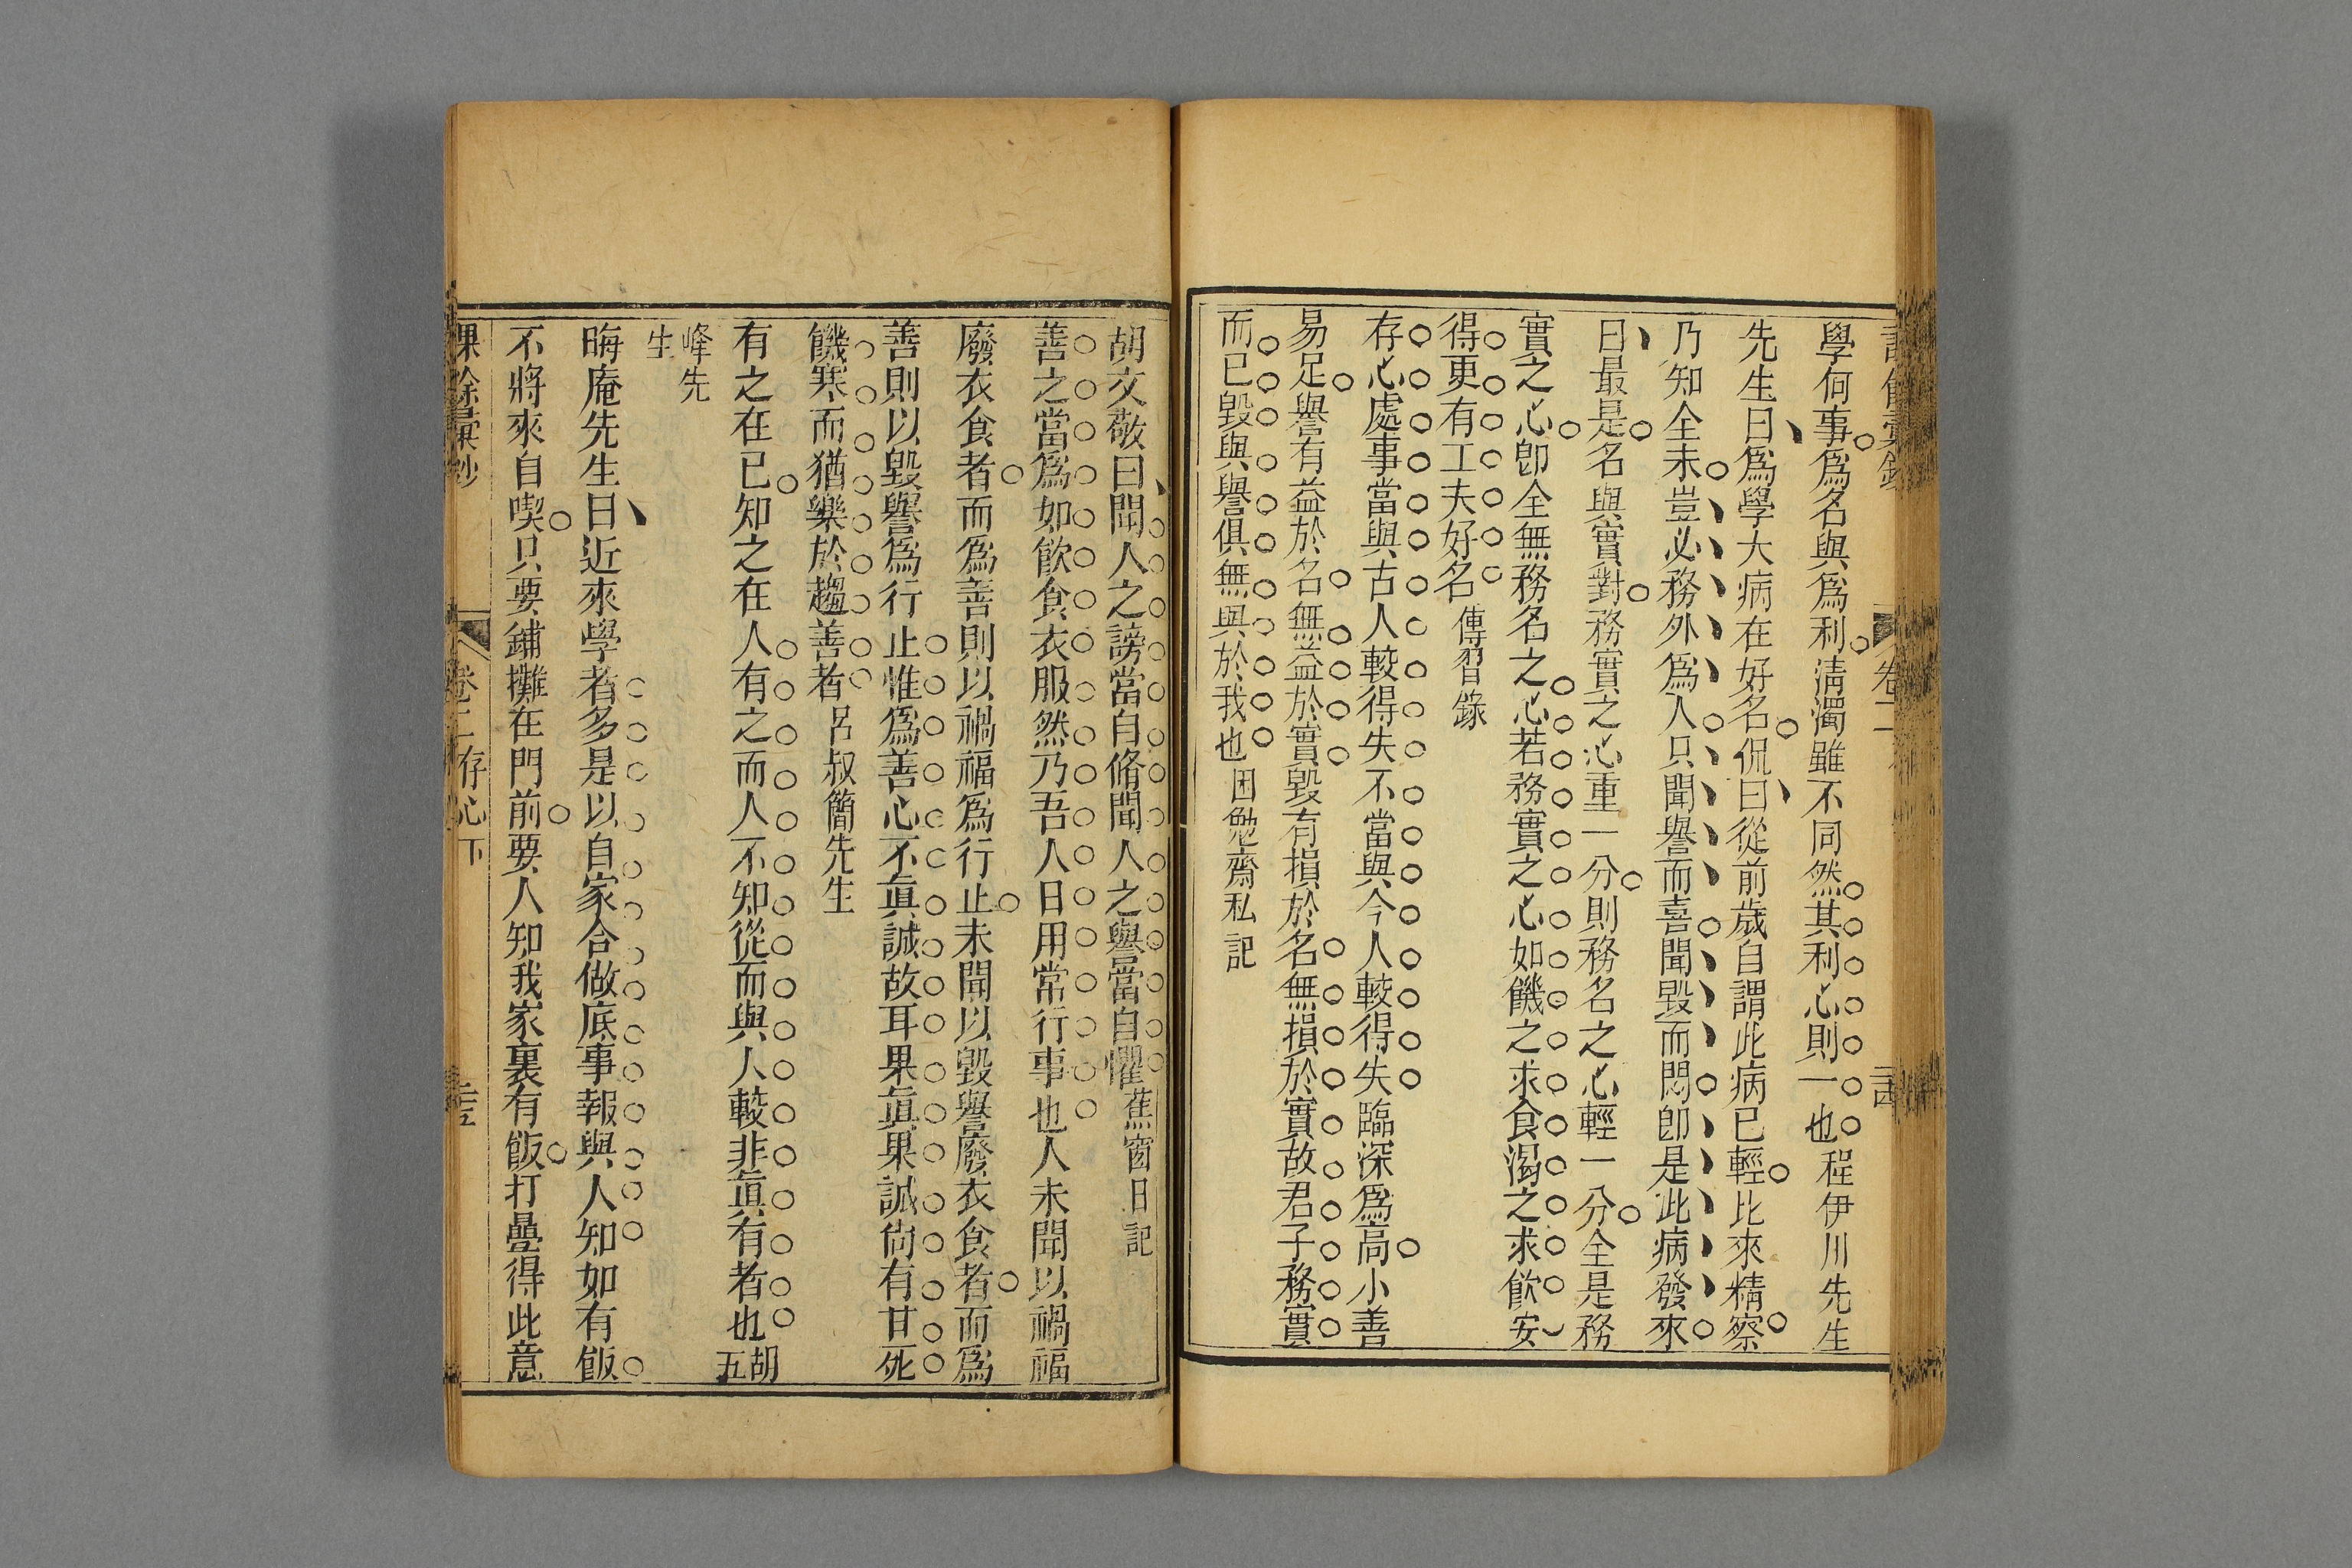 卷二
學何事爲名與爲利淸濁雖不同然其利心則一也程伊川先生
先生曰爲學大病在好名侃曰從前歲自謂此病已輕比來精察
乃知全未豈必務外爲人只聞譽而喜聞毀而悶卽是此病發來
曰最是名與實對務實之心重一分則務名之心輕一分全是務
實之心卽全無務名之心若務實之心如饑之求食渴之求飮安
得更有工夫好名傳習錄
存心處事當與古人較得失不當與今人較得失臨深爲高小善
易足譽有益於名無益於實毀有損於名無損於實故君子務實
而已毀與譽俱無與於我也困勉齋私記
胡文敬曰聞人之謗當自脩聞人之譽當自懼蕉窗日記
善之當爲如飮食衣服然乃吾人日用常行事也人未聞以禍福
廢衣食者而爲善則以禍福爲行止未聞以毀譽廢衣食者而爲
善則以毀譽爲行止惟爲善心不眞誠故耳果眞果誠尙有甘死
饑寒而猶樂於趨善者呂叔簡先生
有之在已知之在人有之而人不知從而與人較非眞有者也胡五
峰先
生
晦庵先生曰近來學者多是以自家合做底事報與人知如有飯
不將來自喫只要鋪攤在門前要人知我家裏有飯打疊得此意
卷二存心下